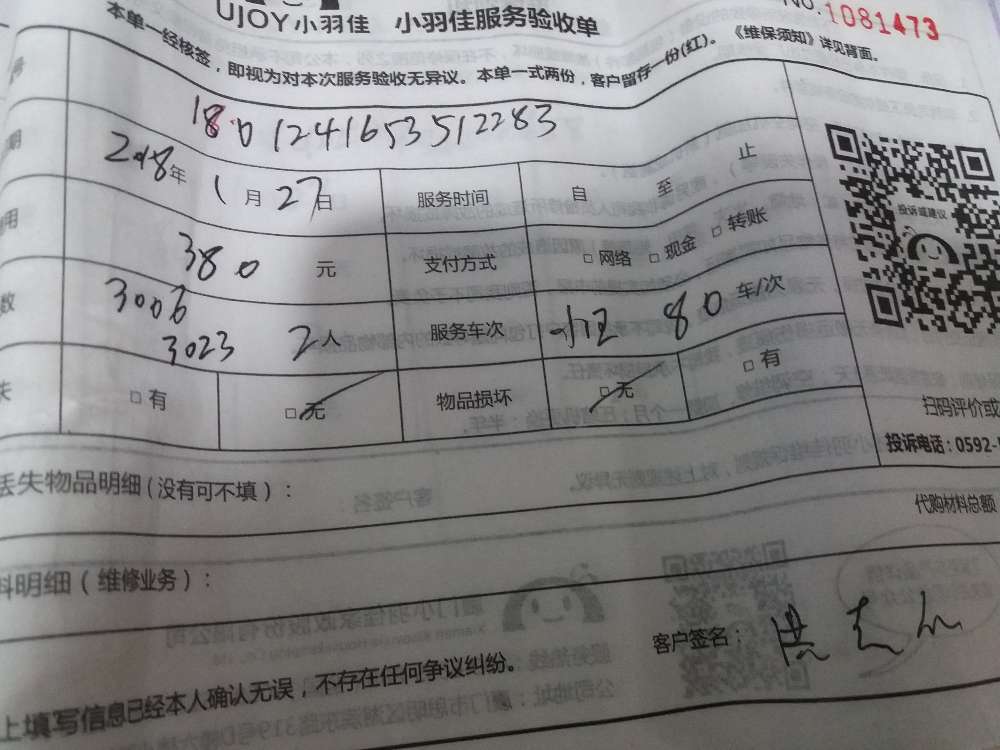 UJOY 小羽佳 小羽佳服务验收单
NO.1081473
本单一经核签，即视为对本次服务验收无异议。本单一式两份，客户留存一份(红)。《维保须知》详见背面。
号 180124165351 2283
期 2018年 1月 27日 服务时间 自 至 止
用 380 元 支付方式 □ 网络 □ 现金 □ 转账
数 3006 3023 2人 服务车次 80 车/次
失 □ 有 □ 无 物品损坏 □ 无 □ 有
投诉或建议
扫码评价或
投诉电话：0592-
丢失物品明细（没有可不填）：
代购材料总额
料明细（维修业务）：
客户签名：
上填写信息已经本人确认无误，不存在任何争议纠纷。